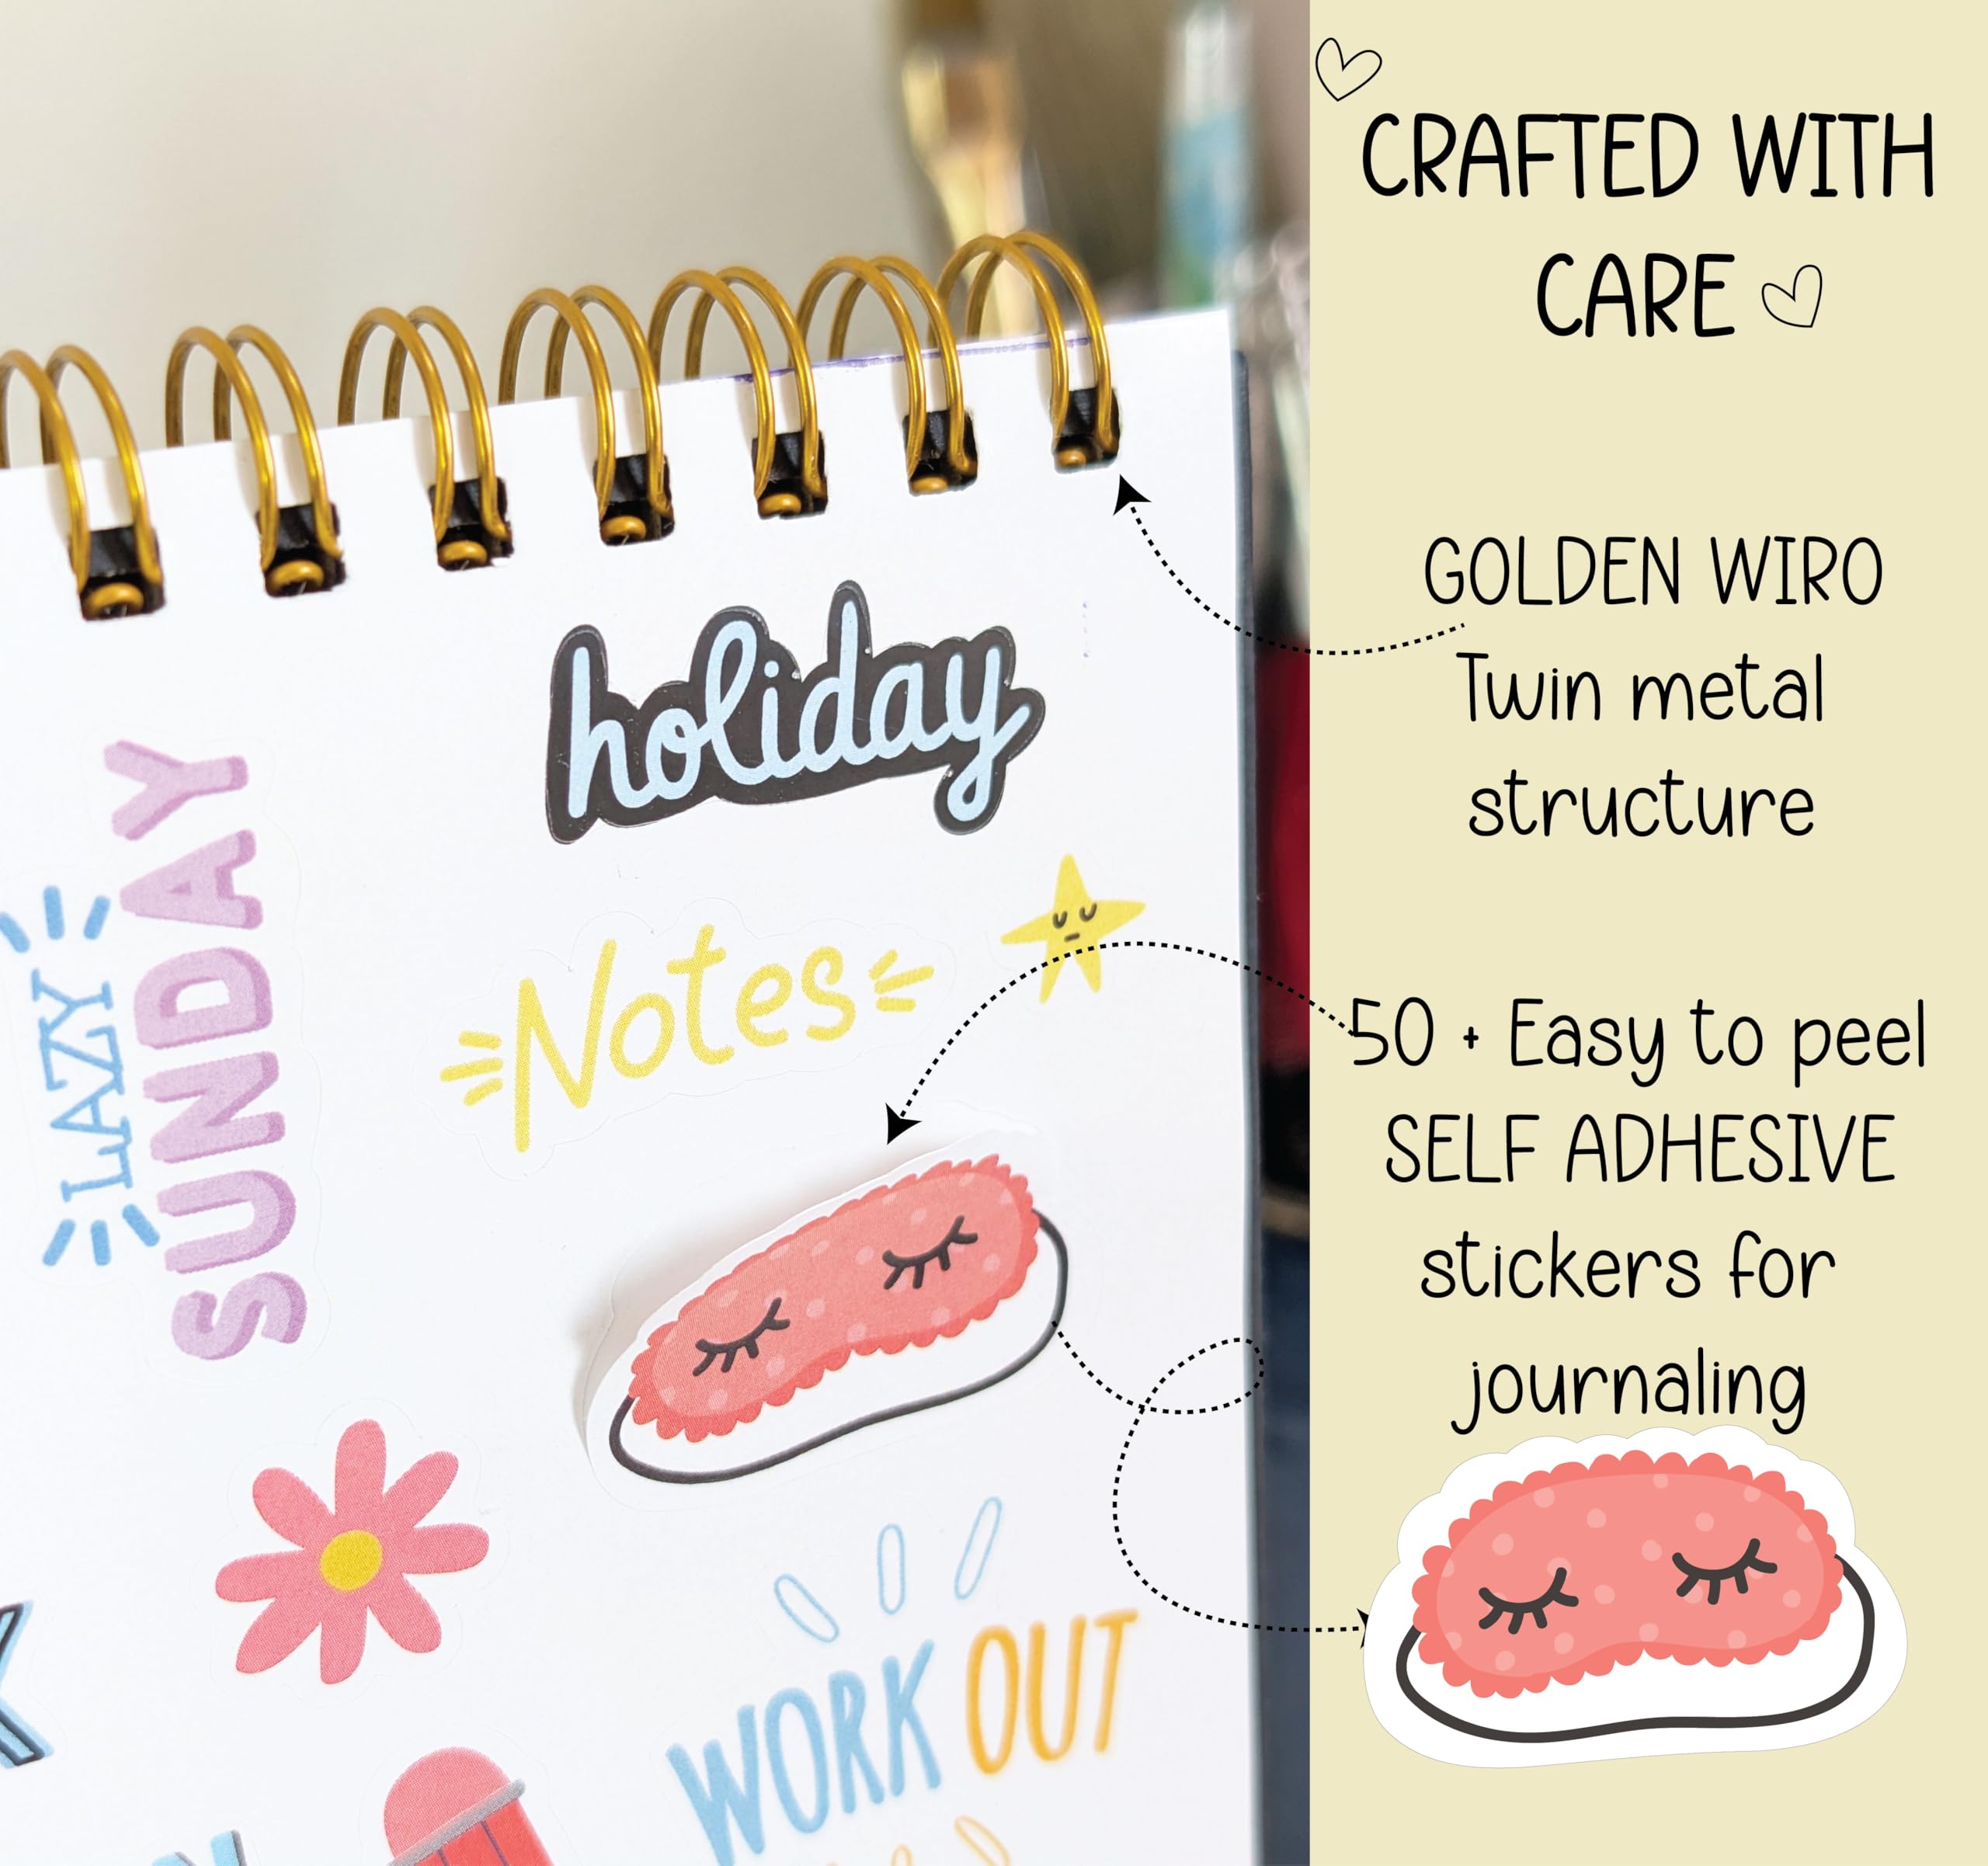 CRAFTED WITH
CARE
GOLDEN WIRO
Twin metal
structure
50 + Easy to peel
SELF ADHESIVE
stickers for
journaling
holiday
LAZY
SUNDAY
Notes
WORK OUT